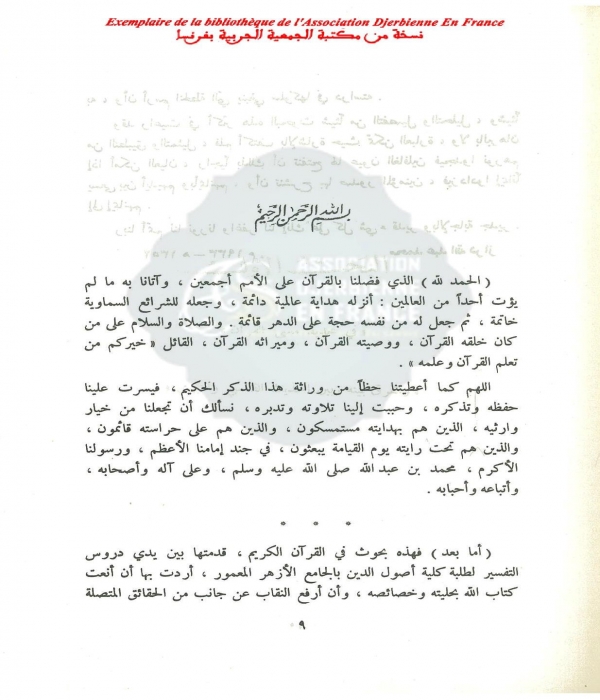 Exemplaire de la bibliothèque de l'Association Djerbienne En France
نسخة من مكتبة الجمعية الجربية بفرنسا
بسم الله الرحمن الرحيم
ASSOCIATION
EN FRANCE
( الحمد لله ) الذي فضلنا بالقرآن على الأمم أجمعين ، وآتانا به ما لم
يؤت أحداً من العالمين : أنزله هداية عالمية دائمة ، وجعله للشرائع السماوية
خاتمة ، ثم جعل له من نفسه حجة على الدهر قائمة . والصلاة والسلام على من
كان خلقه القرآن ، ووصيته القرآن ، وميراثه القرآن ، القائل « خيركم من
تعلم القرآن وعلمه » .
اللهم كما أعطيتنا حظاً من وراثة هذا الذكر الحكيم ، فيسرت علينا
حفظه وتذكره ، وحببت إلينا تلاوته وتدبره ، نسألك أن تجعلنا من خيار
وارثيه ، الذين هم بهدايته مستمسكون ، والذين هم على حراسته قائمون ،
والذين هم تحت رايته يوم القيامة يبعثون ، في جند إمامنا الأعظم ، ورسولنا
الأكرم ، محمد بن عبدالله صلى الله عليه وسلم ، وعلى آله وأصحابه ،
وأتباعه وأحبابه .
* * *
( أما بعد ) فهذه بحوث في القرآن الكريم ، قدمتها بين يدي دروس
التفسير لطلبة كلية أصول الدين بالجامع الأزهر المعمور ، أردت بها أن أنعت
كتاب الله بحليته وخصائصه ، وأن أرفع النقاب عن جانب من الحقائق المتصلة
٩